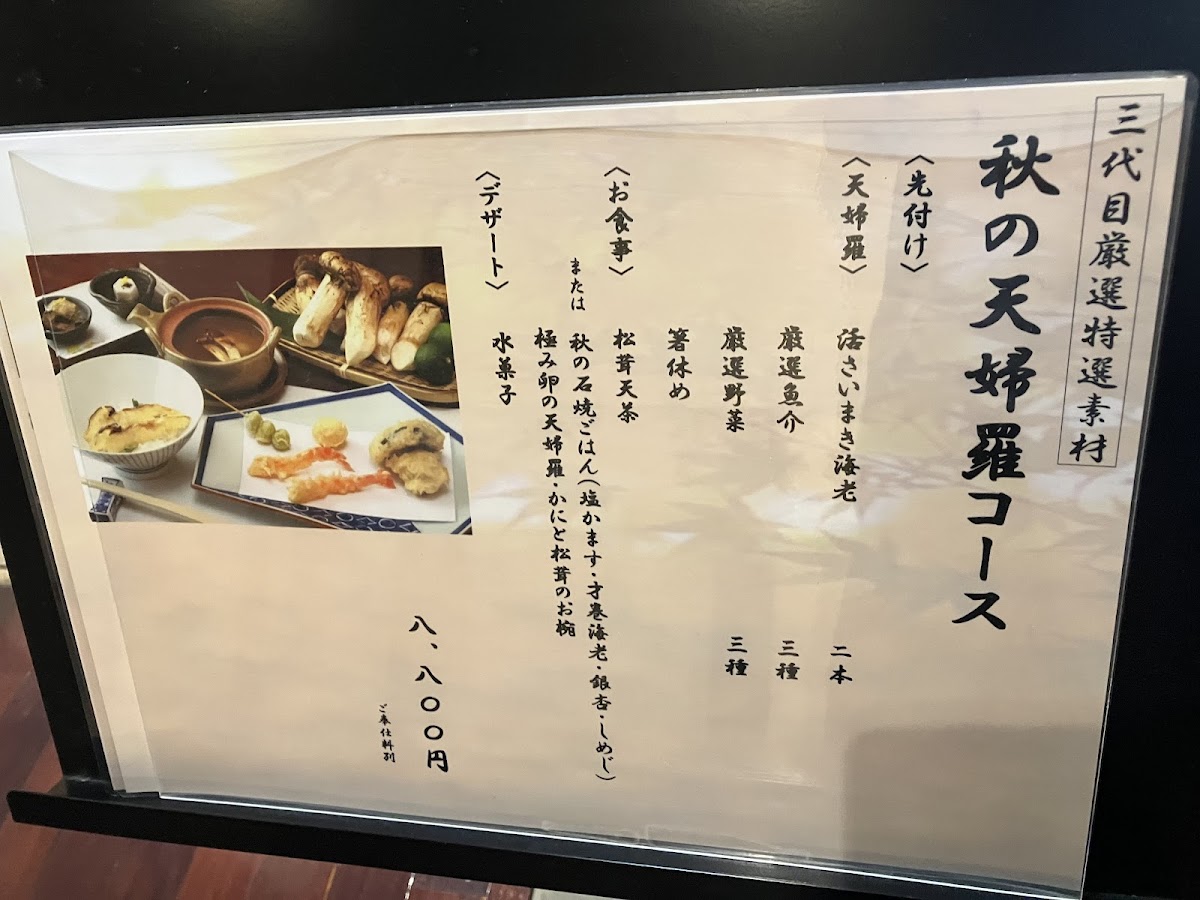 三代目厳選特選素材
秋の天婦羅コース
〈先付け〉
〈天婦羅〉 活さいまき海老 二本
厳選魚介 三種
厳選野菜 三種
箸休め
〈お食事〉 松茸天茶
または 秋の石焼ごはん(塩かます・才巻海老・銀杏・しめじ)
極み卵の天婦羅・かにと松茸のお椀
〈デザート〉 水菓子
八、八〇〇円
ご奉仕料別